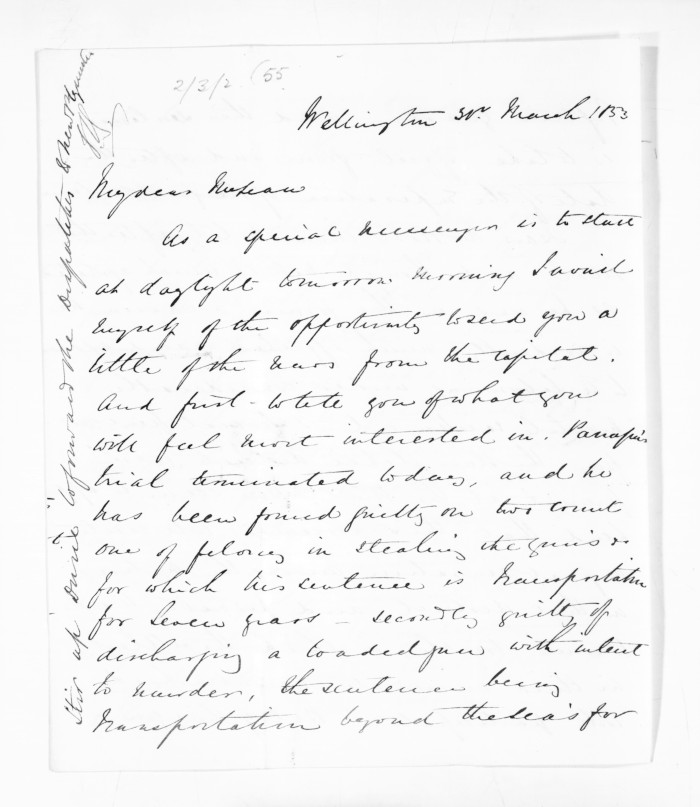 2/3/2 (55
Wellington 30th March 1853
My dear McLean
As a special messenger is to start
at daylight tomorrow morning I avail
myself of the opportunity to send you a
little of the news from the Capital.
And first - to tell you of what you
will feel most interested in.
trial terminated today, and he
has been found guilty on two count
one of felony in stealing the guns &c
for which his sentence is Transportation
for Seven years - secondly guilty of
discharging a loaded gun with intent
to murder, the sentence being
Transportation beyond the sea's for
Stir up to forward the Despatches to New Plymouth